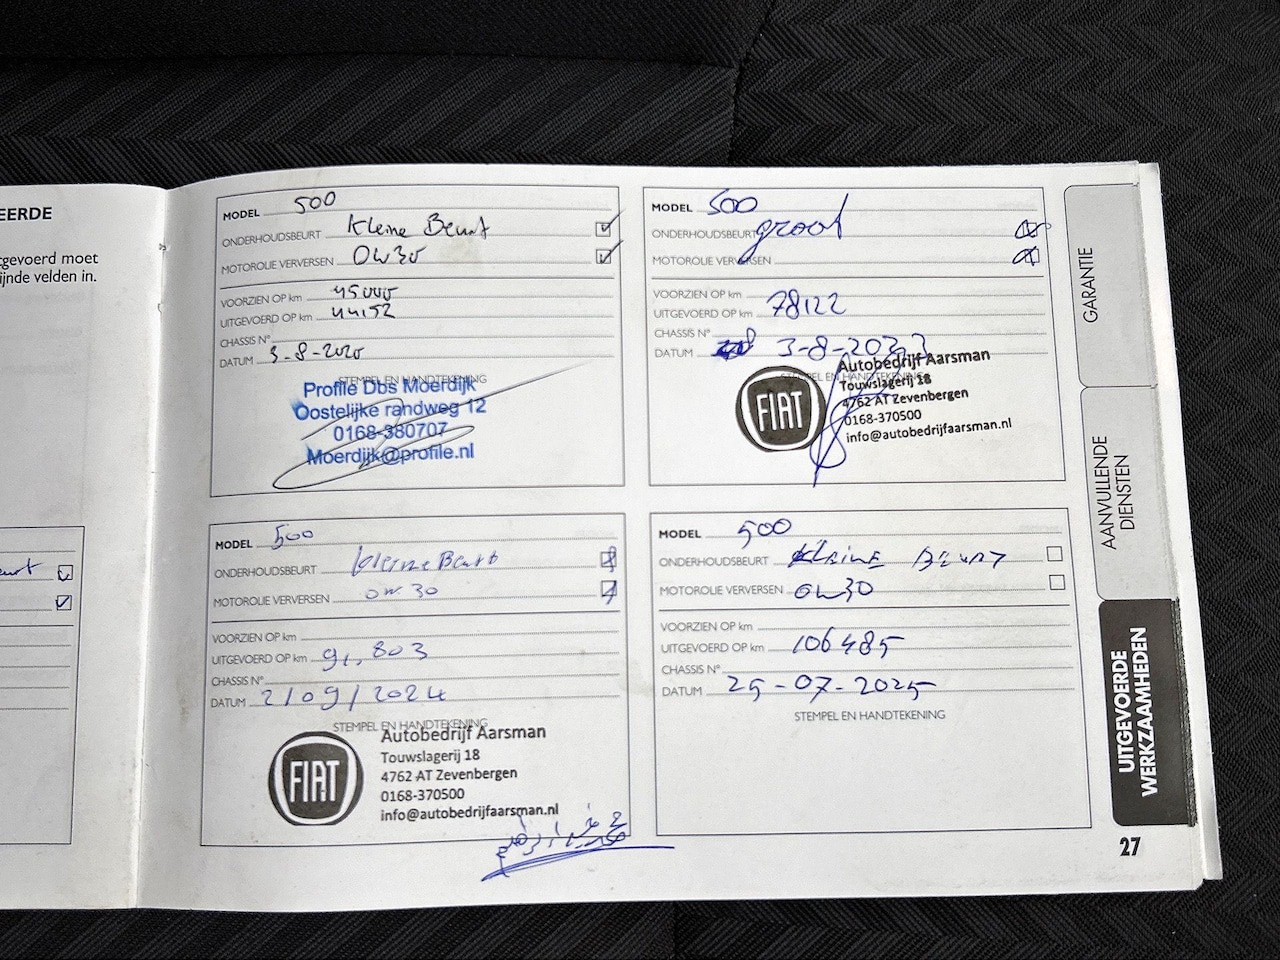 EERDE
tgevoerd moet
ijnde velden in.
eurt
MODEL 500
ONDERHOUDSBEURT Kleine Beurt
MOTOROLIE VERVERSEN 0W30
VOORZIEN OP km 45000
UITGEVOERD OP km 44152
CHASSIS N°
DATUM 3-8-2020
STEMPEL EN HANDTEKENING
Profile Dbs Moerdijk
Oostelijke randweg 12
0168-380707
Moerdijk@profile.nl
MODEL 500
ONDERHOUDSBEURT groot
MOTOROLIE VERVERSEN
VOORZIEN OP km
UITGEVOERD OP km 78122
CHASSIS N°
DATUM 3-8-2023
STEMPEL EN HANDTEKENING
FIAT
Autobedrijf Aarsman
Touwslagerij 18
4762 AT Zevenbergen
0168-370500
info@autobedrijfaarsman.nl
MODEL 500
ONDERHOUDSBEURT kleine Beurt
MOTOROLIE VERVERSEN 0W30
VOORZIEN OP km
UITGEVOERD OP km 91,803
CHASSIS N°
DATUM 2/09/2024
STEMPEL EN HANDTEKENING
FIAT
Autobedrijf Aarsman
Touwslagerij 18
4762 AT Zevenbergen
0168-370500
info@autobedrijfaarsman.nl
MODEL 500
ONDERHOUDSBEURT Kleine Beurt
MOTOROLIE VERVERSEN 0W30
VOORZIEN OP km
UITGEVOERD OP km 106485
CHASSIS N°
DATUM 25-07-2025
STEMPEL EN HANDTEKENING
GARANTIE
AANVULLENDE
DIENSTEN
UITGEVOERDE
WERKZAAMHEDEN
27